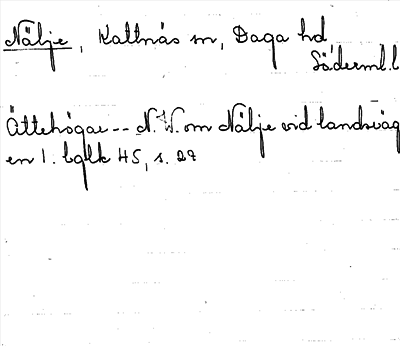 Nälje, Kattnäs sn, Daga hd
Söderml.l
Ättehögar -- N.V. om Nälje vid landsväg
en l. bglk H5, s. 27